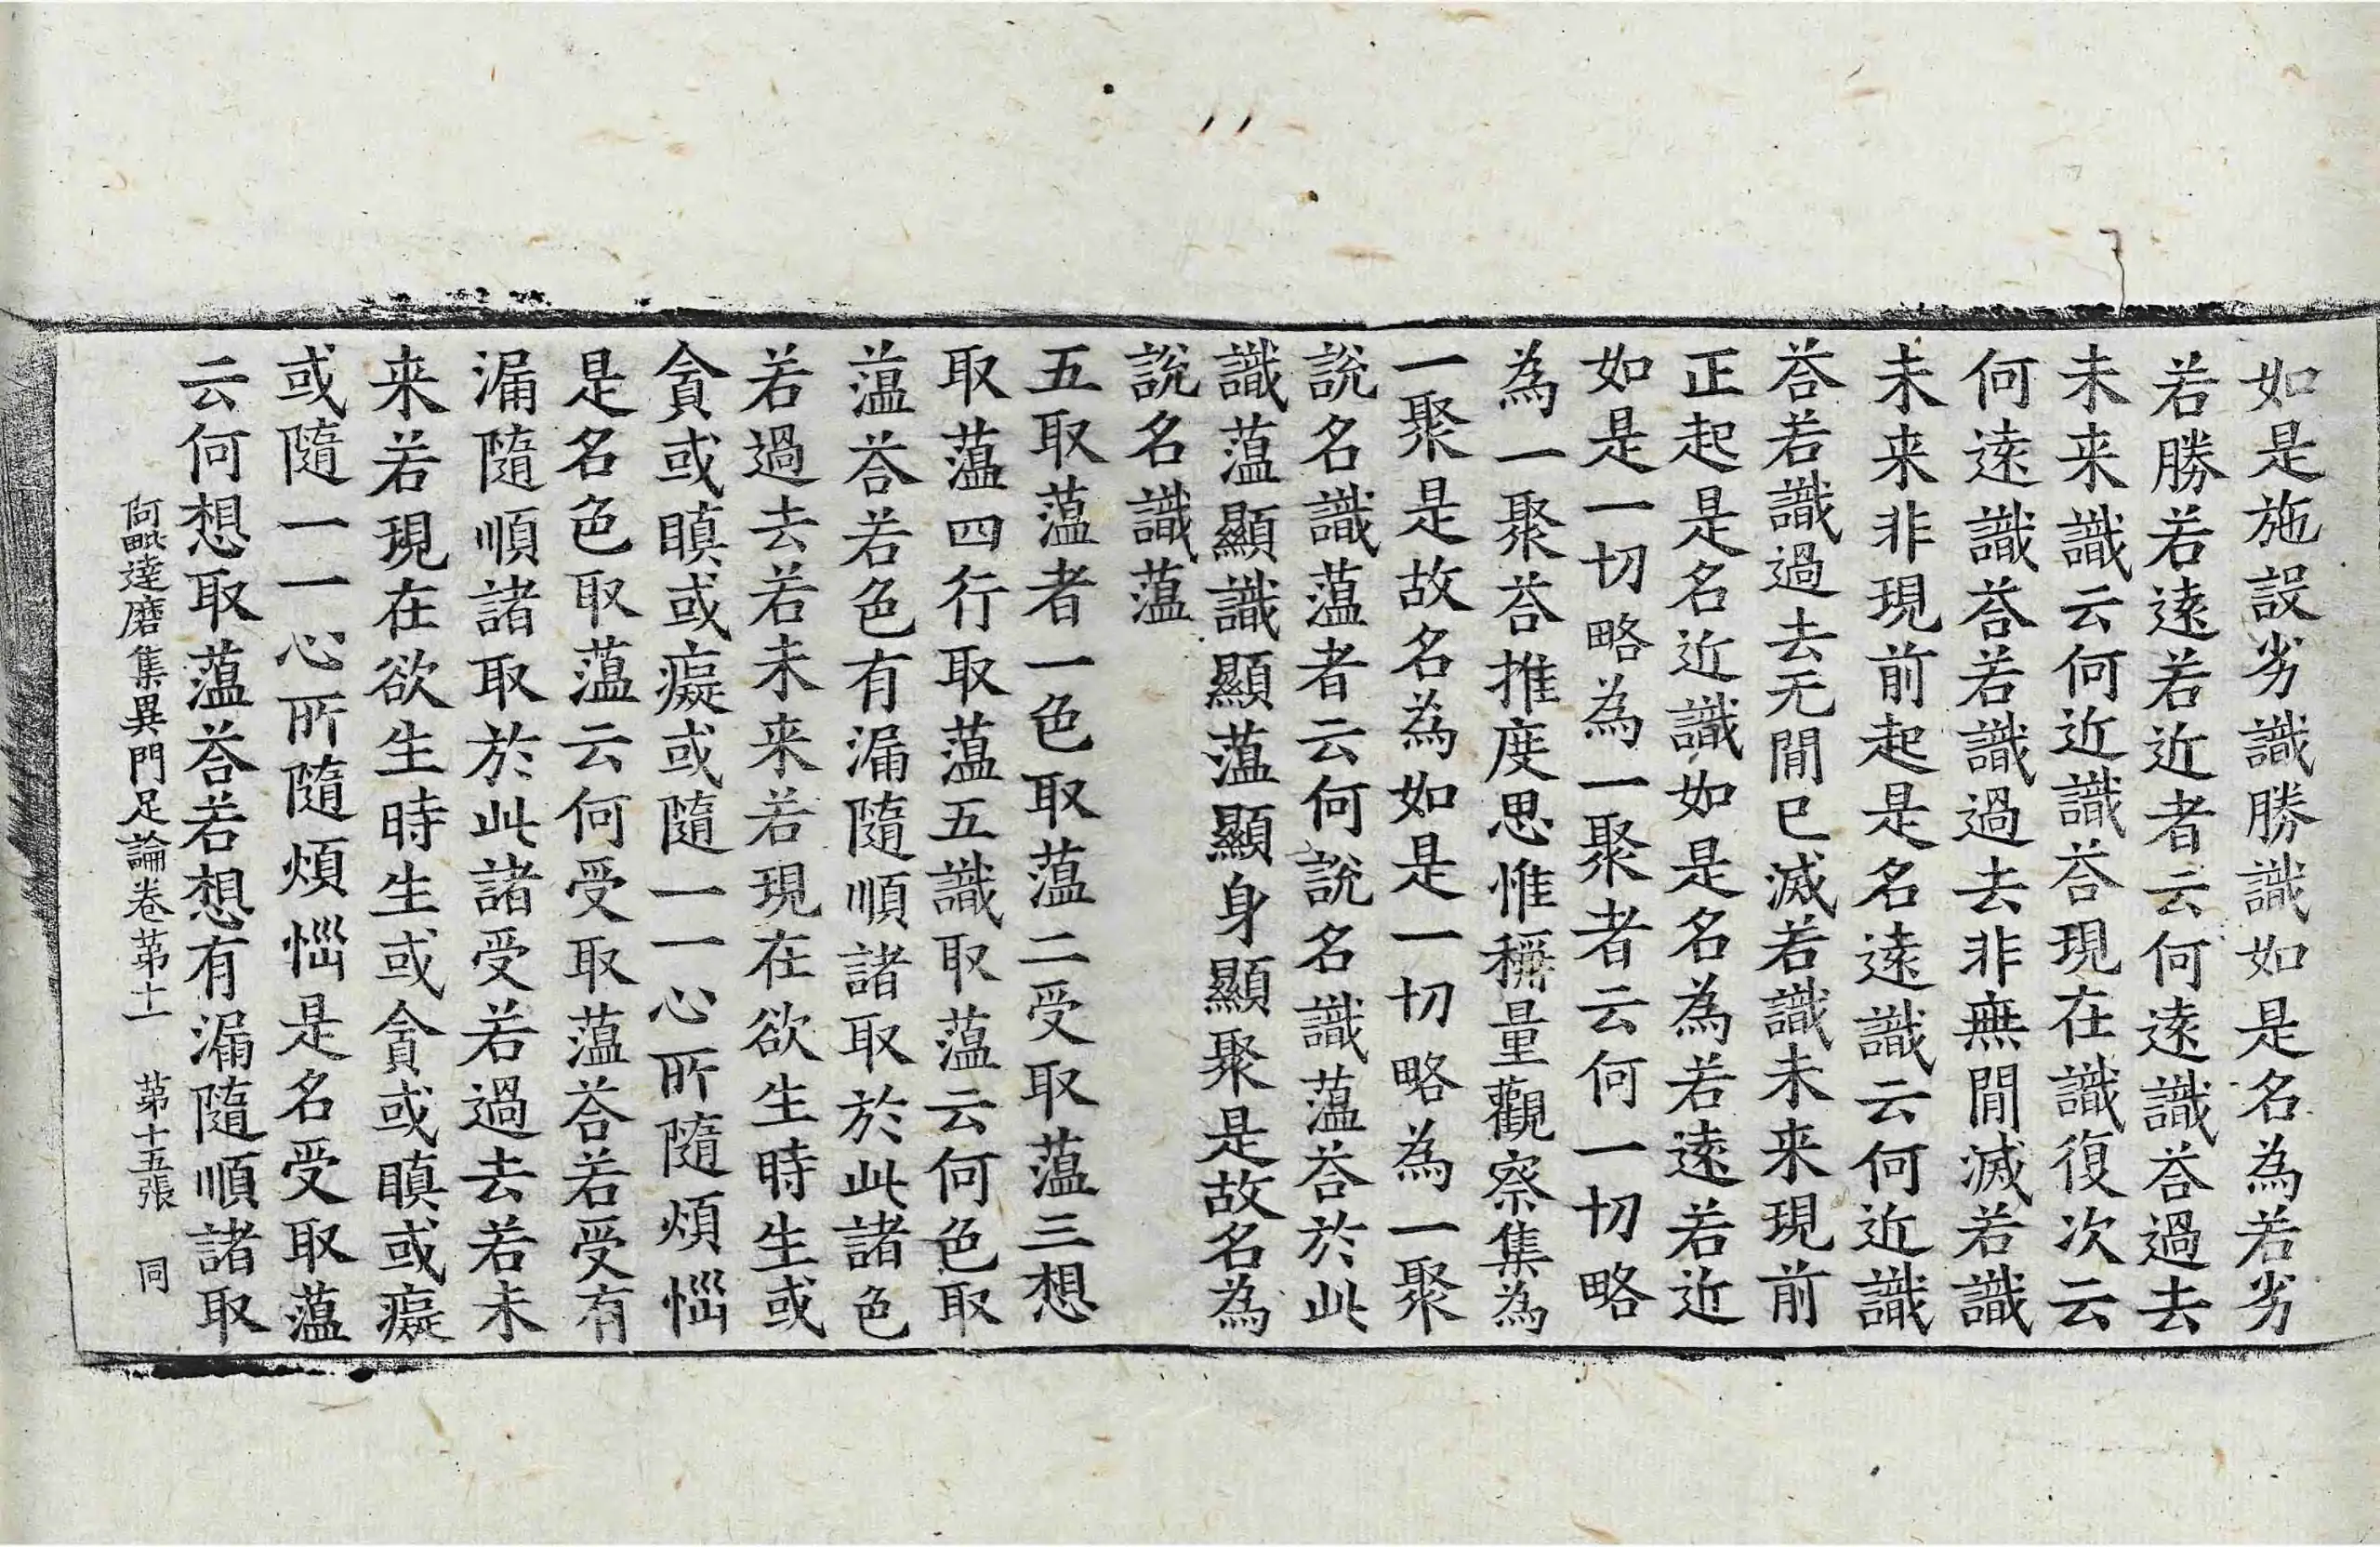 如是施設劣識勝識如是名為若劣
若勝若遠若近者云何遠識荅過去
未来識云何近識荅現在識復次云
何遠識荅若識過去非無間滅若識
未来非現前起是名遠識云何近識
荅若識過去无間已滅若識未来現前
正起是名近識如是名為若遠若近
如是一切略為一聚者云何一切略
為一聚荅推度思惟稱量觀察集為
一聚是故名為如是一切略為一聚
說名識薀者云何說名識薀荅於此
識薀顯識顯薀顯身顯聚是故名為
說名識薀
五取薀者一色取薀二受取薀三想
取薀四行取薀五識取薀云何色取
薀荅若色有漏隨順諸取於此諸色
若過去若未来若現在欲生時生或
貪或瞋或癡或隨一一心所隨煩惱
是名色取薀云何受取薀荅若受有
漏隨順諸取於此諸受若過去若未
来若現在欲生時生或貪或瞋或癡
或隨一一心所隨煩惱是名受取薀
云何想取薀荅若想有漏隨順諸取
阿毗達磨集異門足論卷苐十一 苐十五張 同